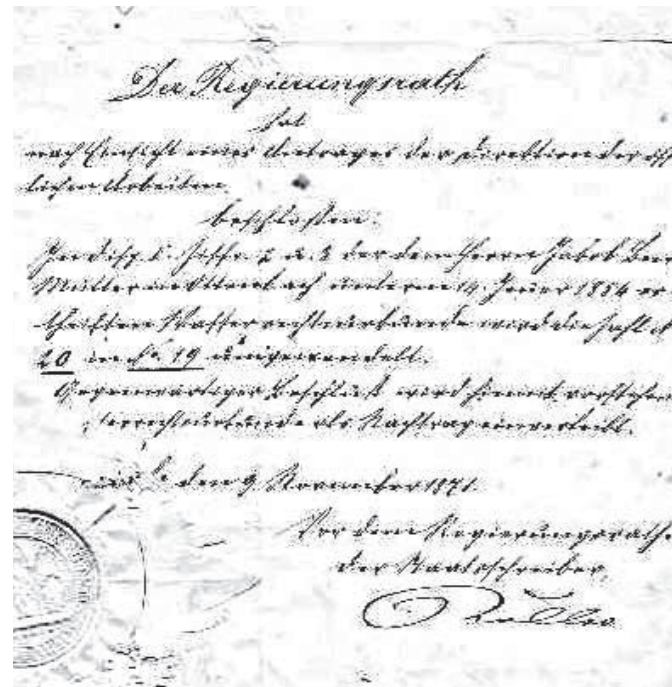 Der Regierungsrath
hat
nach Einsicht eines Antrages der Direktion der öff
lichen Arbeiten
beschlossen:
In Disp. Ziffr. 2 u. 3 der dem Herrn Jakob
Müller in Ottenbach unterm 14. Januar 1854 er
theilten Wasserrechtsurkunde wird die Zahl
20 in No. 19 umgewandelt.
Gegenwärtiger Beschluß wird hiemit vorstehen
urkunde als Nachtrag einverleibt.
den 9 November 1871.
Vor dem Regierungsrathe
der Staatsschreiber